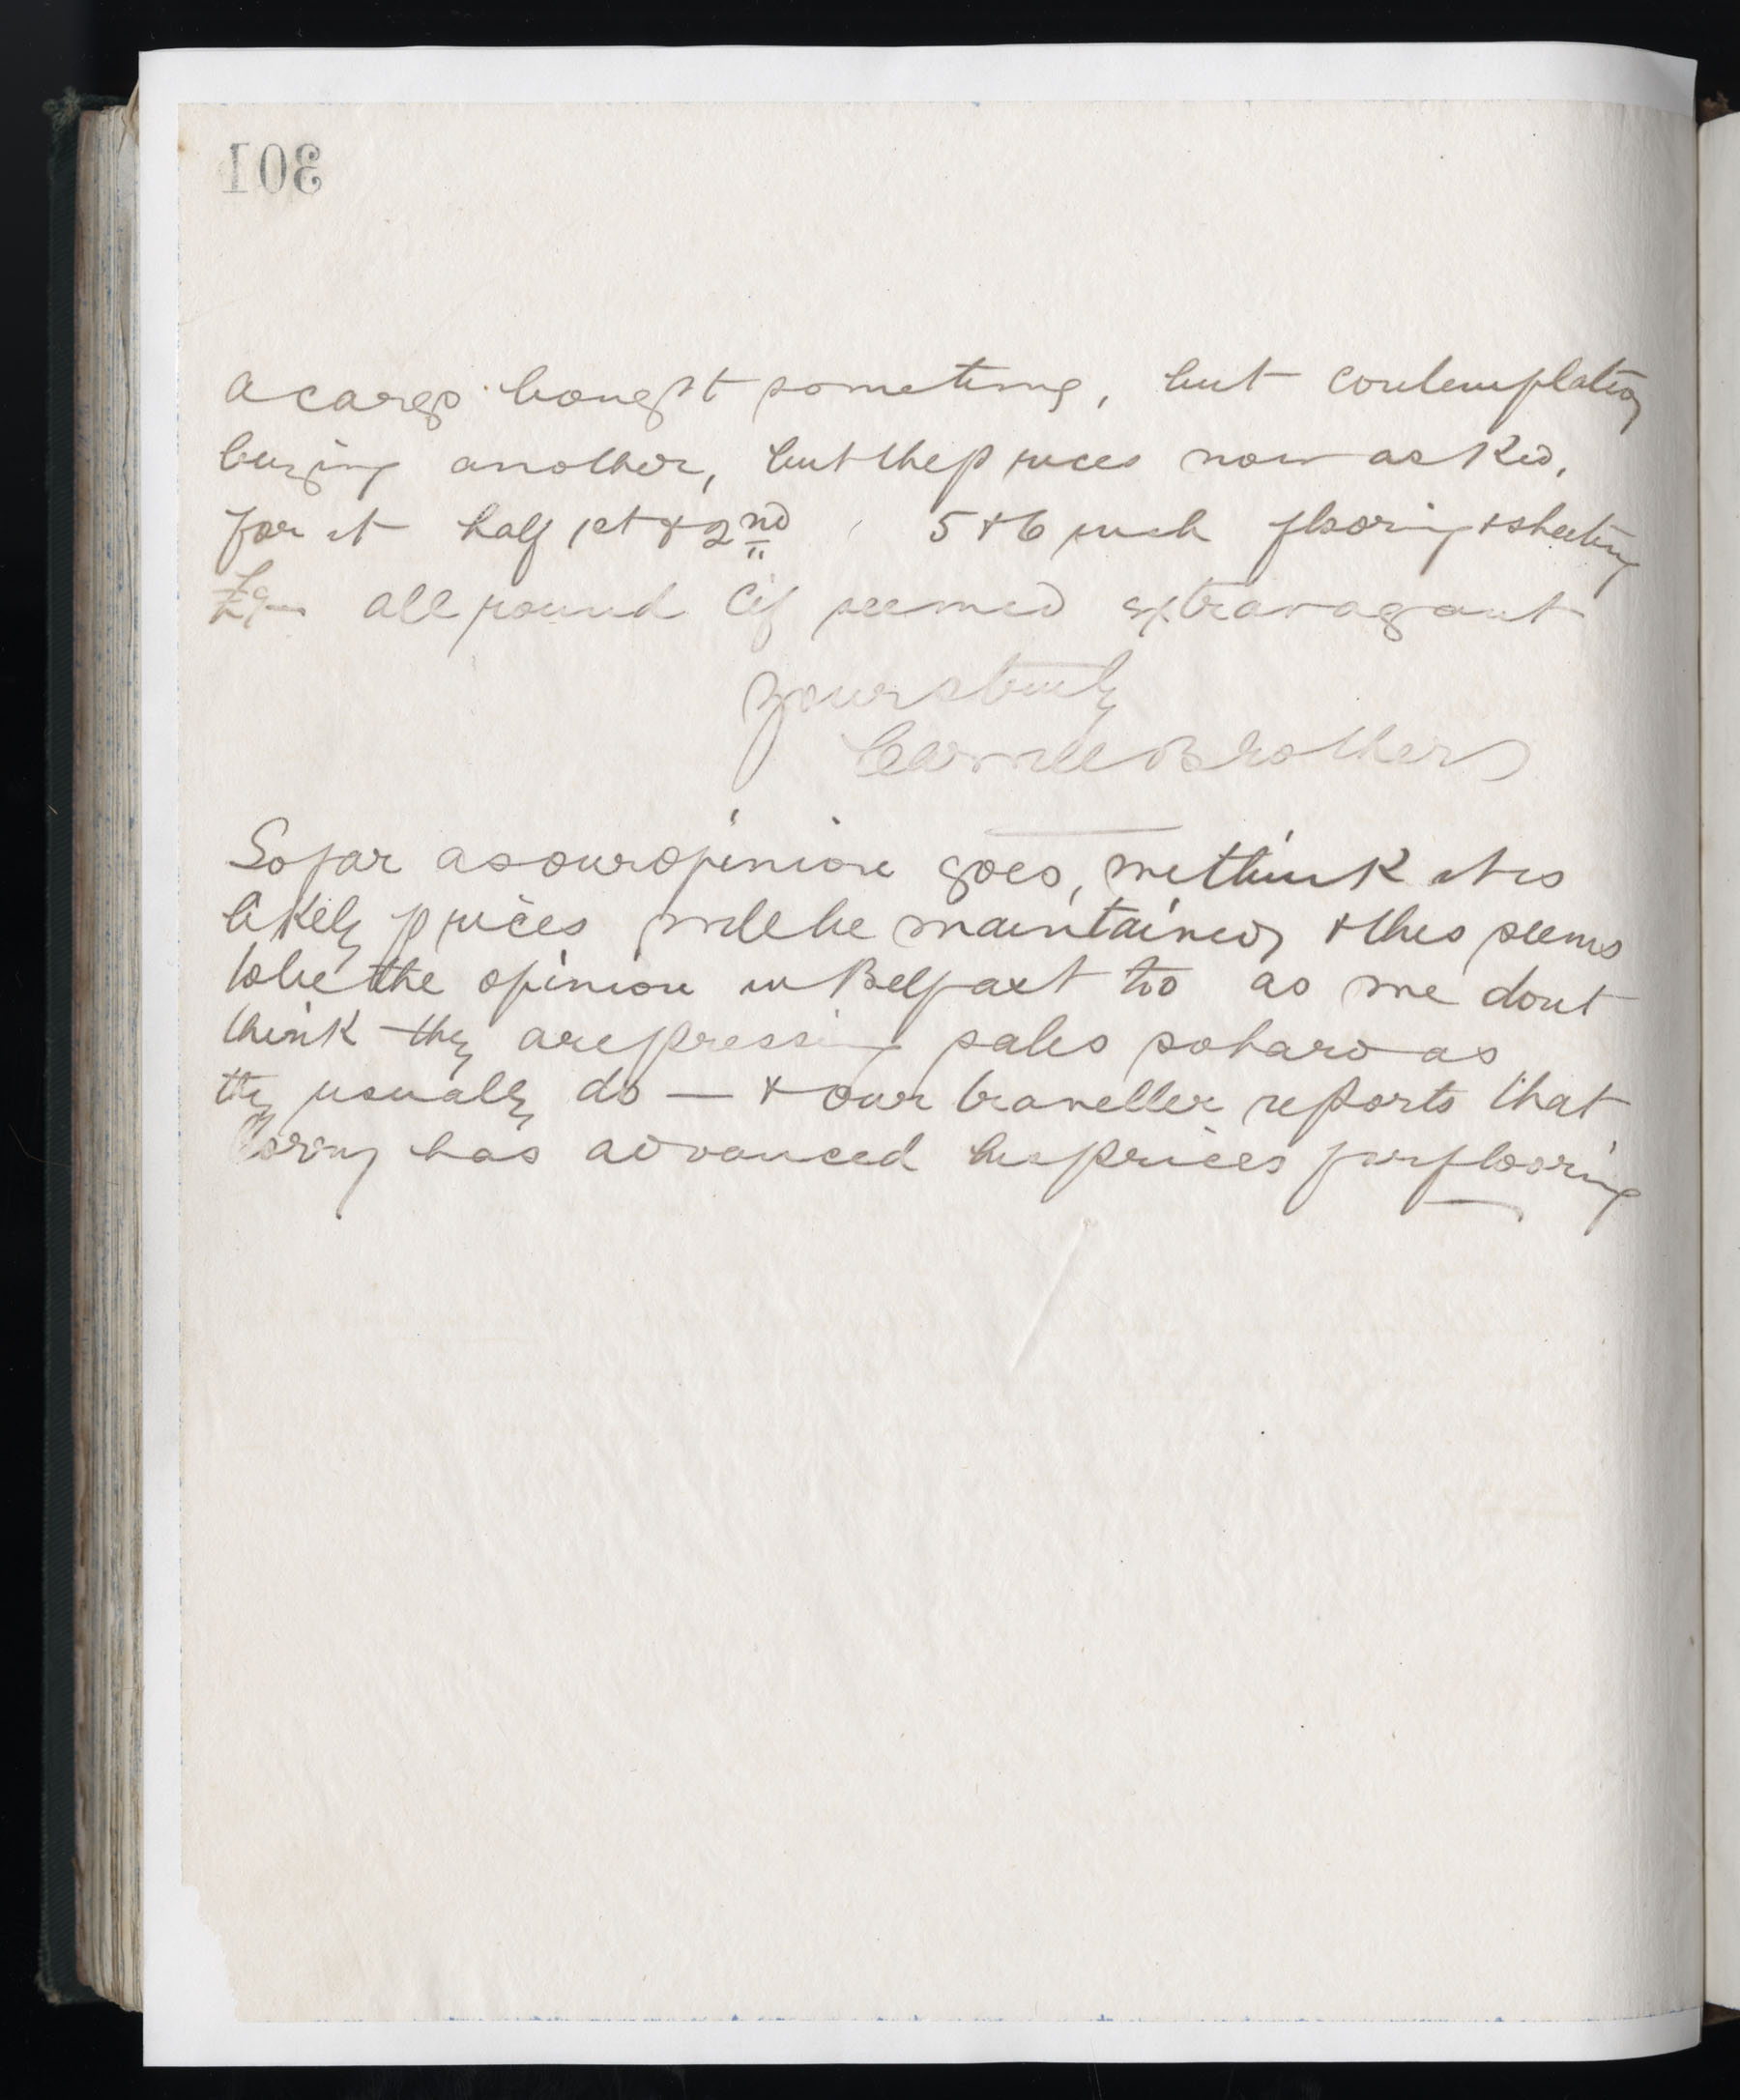 301
a cargo bought sometime, but contemplating
buying another, but the prices now asked,
for it half 1st & 2nd 5 & 6 inch flooring & sheeting
£9 all round Cif seemed extravagant
Yours truly
Brothers
So far as our opinion goes, we think it is
likely prices will be maintained, & this seems
to be the opinion in Belfast too as we dont
think they are pressing sales so hard as
they usually do — & our traveller reports that
has advanced his prices for flooring